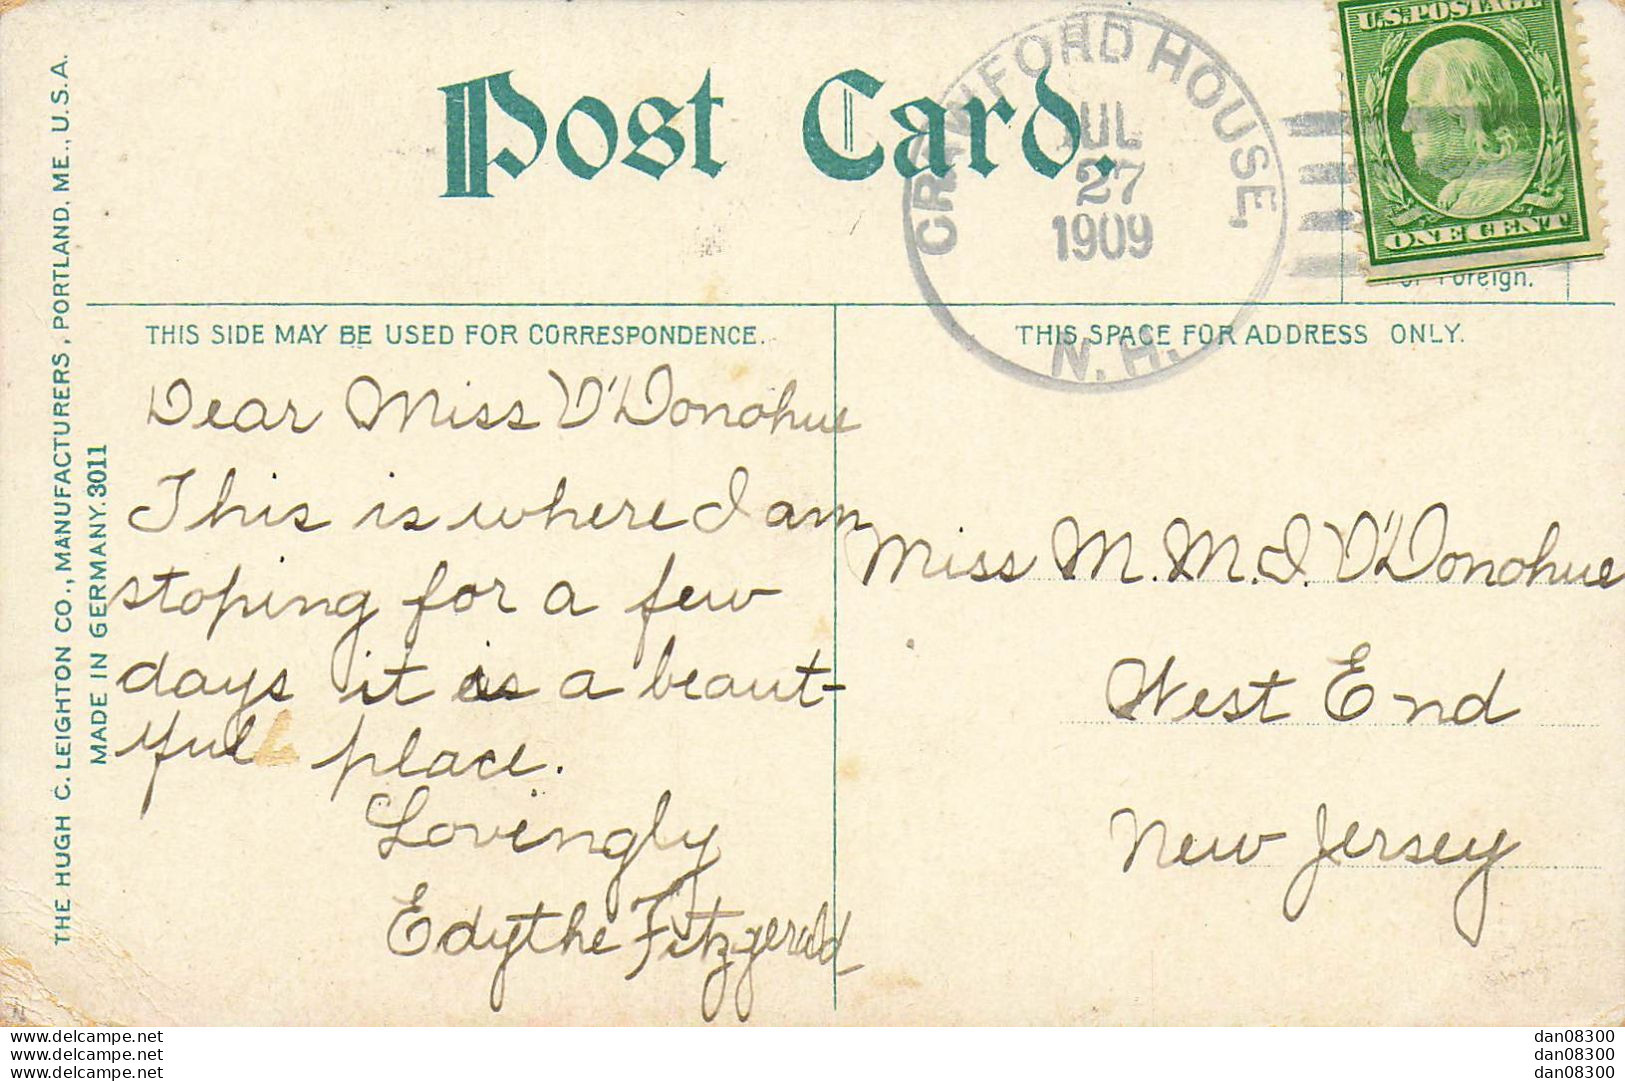 Post Card.
CRAWFORD HOUSE,
JUL
27
1909
N.H.
U.S. POSTAGE
ONE CENT
Foreign.
THE HUGH C. LEIGHTON CO., MANUFACTURERS, PORTLAND, ME., U.S.A.
MADE IN GERMANY. 3011
THIS SIDE MAY BE USED FOR CORRESPONDENCE.
Dear Miss O'Donohue
This is where I am
stoping for a few
days it is a beaut-
yful place.
Lovingly
Edythe Fitzgerald
THIS SPACE FOR ADDRESS ONLY.
Miss M. M. I. O'Donohue
West End
New Jersey
www.delcampe.net
www.delcampe.net
www.delcampe.net
dan08300
dan08300
dan08300